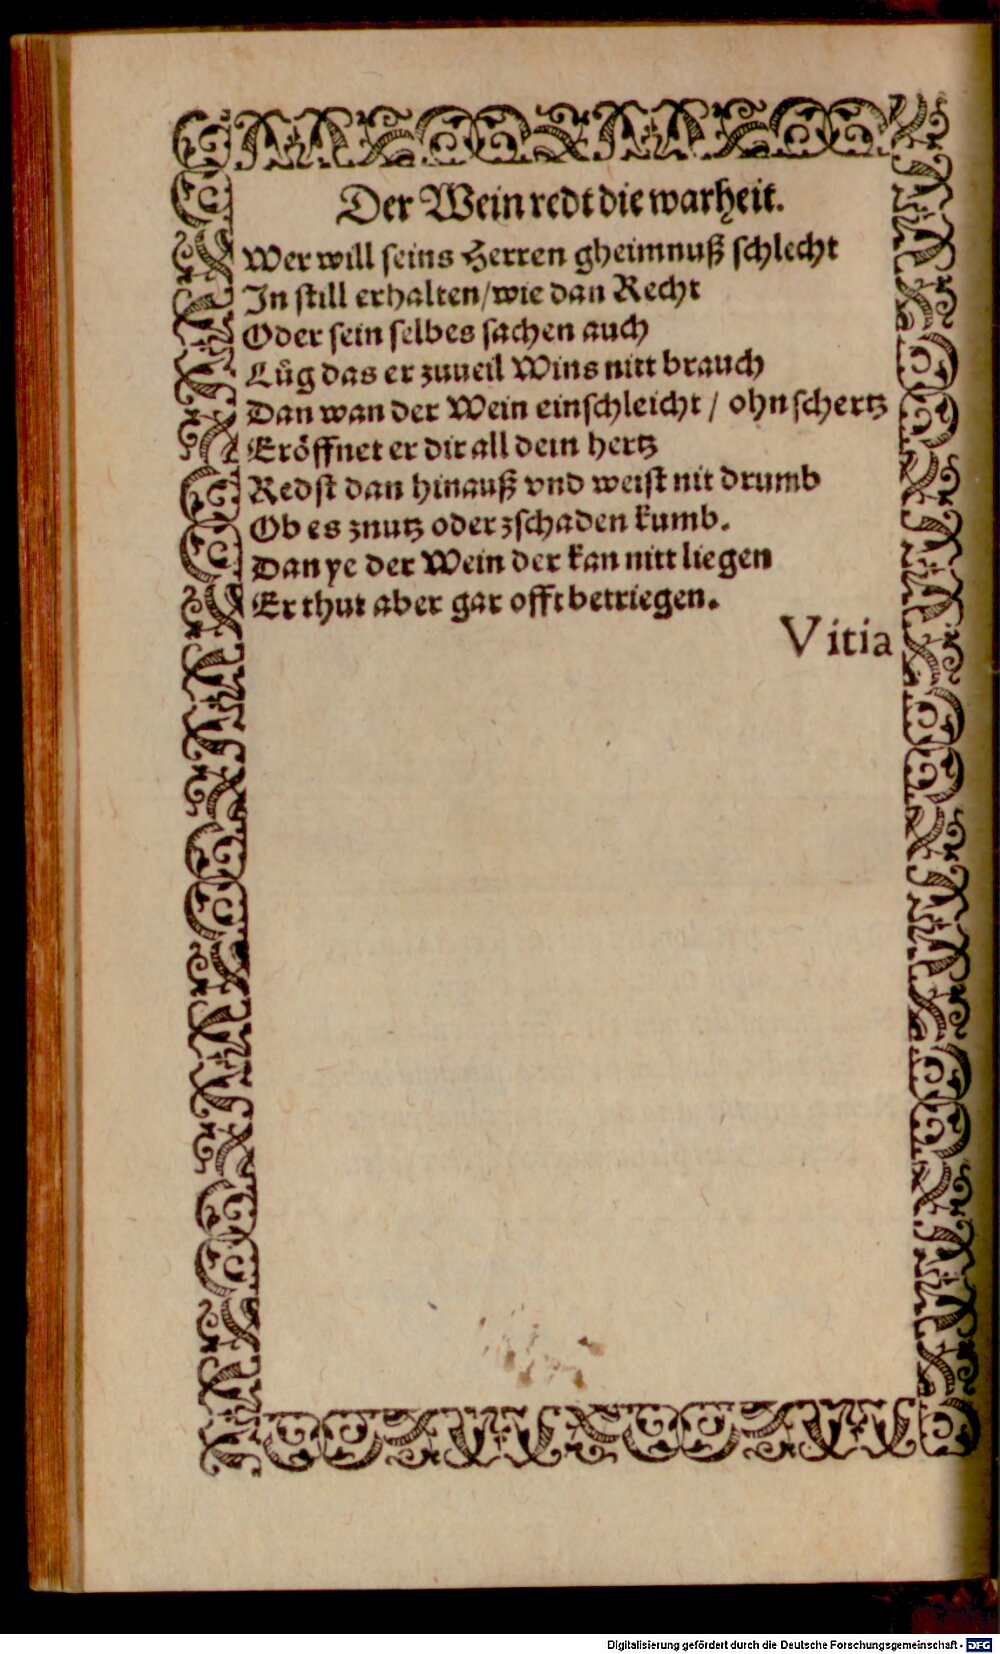 Der Wein redt die warheit.
Wer will seins Herren gheimnuß schlecht
In still erhalten/wie dan Recht
Oder sein selbes sachen auch
Lůg das er zuueil Wins nitt brauch
Dan wan der Wein einschleicht / ohn schertz
Eröffnet er dir all dein hertz
Redst dan hinauß vnd weist nit drumb
Ob es znutz oder zschaden kumb.
Dan ye der Wein der kan nitt liegen
Er thut aber gar offt betriegen.
Vitia
Digitalisierung gefördert durch die Deutsche Forschungsgemeinschaft - DFG